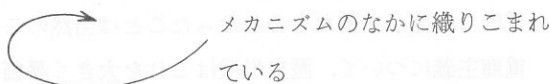 メカニズムのなかに織りこまれ
ている